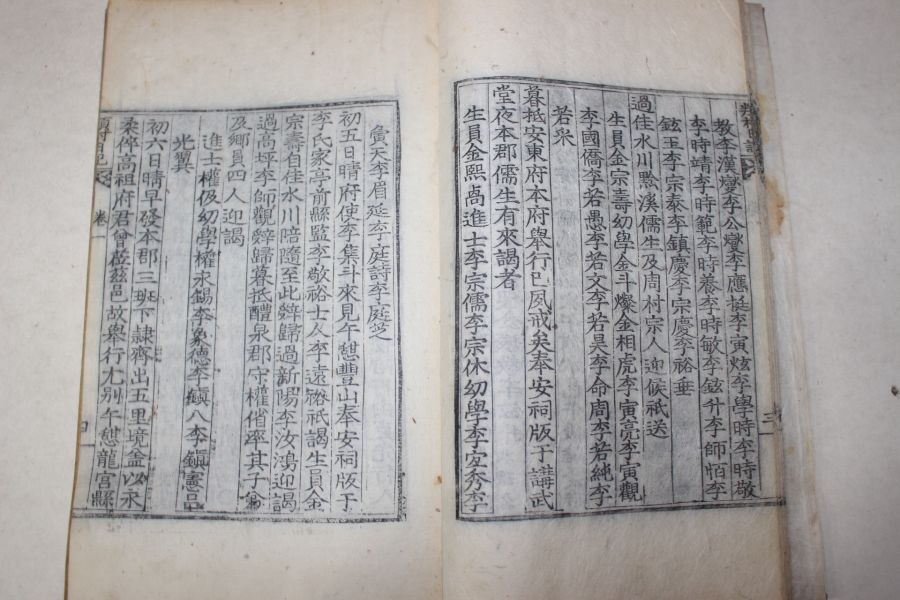 教李漢燮李公燮李應挺李寅炫李學時李時敬
李時靖李時範李時養李時敏李鉉升李師栢李
鉉玉李宗泰李鎭慶李宗慶李裕垂
過佳水川黔溪儒生及周村宗人迎候祗送
生員金宗壽幼學金斗燦金相虎李寅亮李寅觀
李國僑李若愚李若文李若昊李命周李若純李
若采
暮抵安東府本府擧行已夙戒矣奉安祠版于講武
堂夜本郡儒生有來謁者
生員金熙卨進士李宗儒李宗休幼學李宏秀李
寅天李眉延李庭詩李庭芝
初五日晴府使李集斗來見午憇豐山奉安祠版于
李氏家亭前縣監李敬裕士人李遠裕祇謁生員金
宗壽自佳水川陪隨至此辭歸過新陽李汝鴻迎謁
過高坪李師觀辭歸暮抵醴泉郡守權偗率其子
及鄕員四人迎謁
進士權伋幼學權永錫李象德李鎭八李鎭憲邑
光翼
初六日晴早發本郡三班下隷齊出五里境盖以永
柔倅高祖府君曾莅玆邑故擧行尤別午憇龍宮縣
卷一